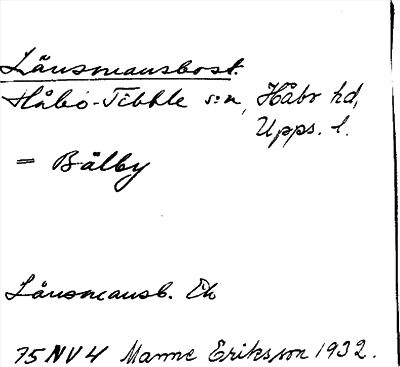 Länsmansbost.
Håbo-Tibble s:n, Håbo hd,
Upps. l.
= Bålby
Länsmansb. Ek
75NV4 Manne Eriksson 1932.